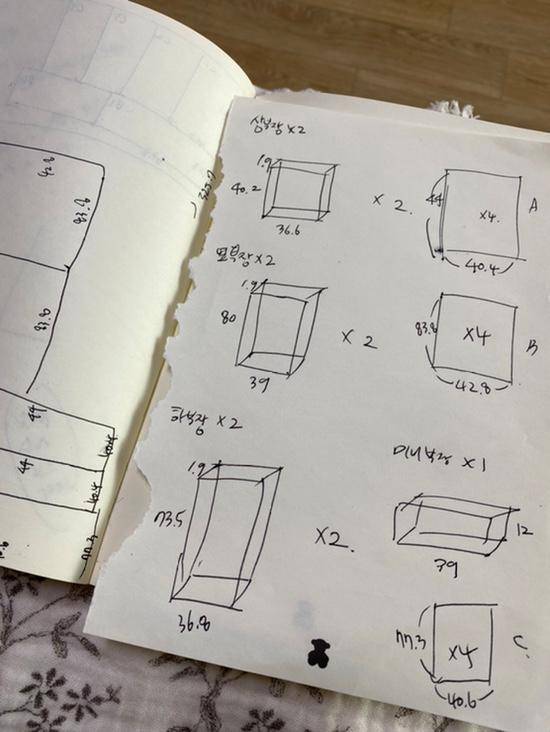 상부장 x2
1.9
40.2
36.6
x 2.
44
x4.
A
40.4
1.9
80
39
x 2
83.8
x4
B
42.8
하부장 x 2
1.9
73.5
36.8
x2.
미니부장 x1
12
39
77.3
x4
C.
40.6
42.8
83.8
83.8
44
44
40.4
40.4
77.3